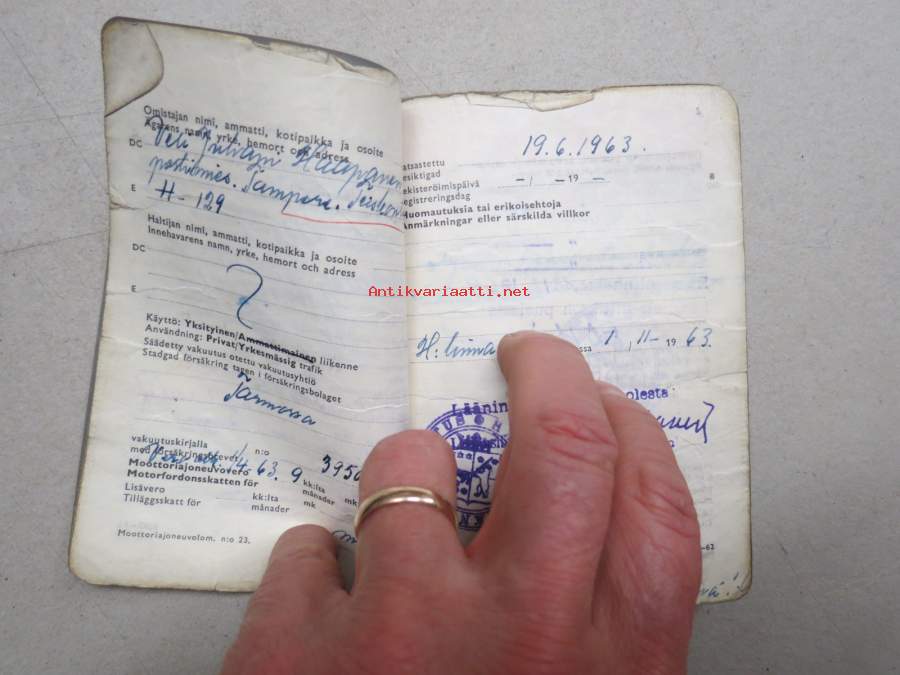 Omistajan nimi, ammatti, kotipaikka ja osoite
Ägarens namn, yrke, hemort och adress
DC Veli Juhani Haapanen
postimies. Tampere.
E H-129
Haltijan nimi, ammatti, kotipaikka ja osoite
Innehavarens namn, yrke, hemort och adress
DC
E
Käyttö: Yksityinen/Ammattimainen liikenne
Användning: Privat/Yrkesmässig trafik
Säädetty vakuutus otettu vakuutusyhtiö
Stadgad försäkring tagen i försäkringsbolaget
Tarmossa
vakuutuskirjalla
med försäkringsbrevet n:o
Moottoriajoneuvovero 14.63. 9 kk:lta 3950 mk
Motorfordonsskatten för månader
Lisävero kk:lta mk
Tilläggsskatt för månader mk
Moottoriajoneuvolom. n:o 23.
19.6.1963.
atsastettu
esiktigad
ekisteröimispäivä — / — 19 —
egistreringsdag
B
Huomautuksia tai erikoisehtoja
Anmärkningar eller särskilda villkor
Antikvariaatti.net
H:linna ssa 1 / 11-1963.
Läänin olesta
-62